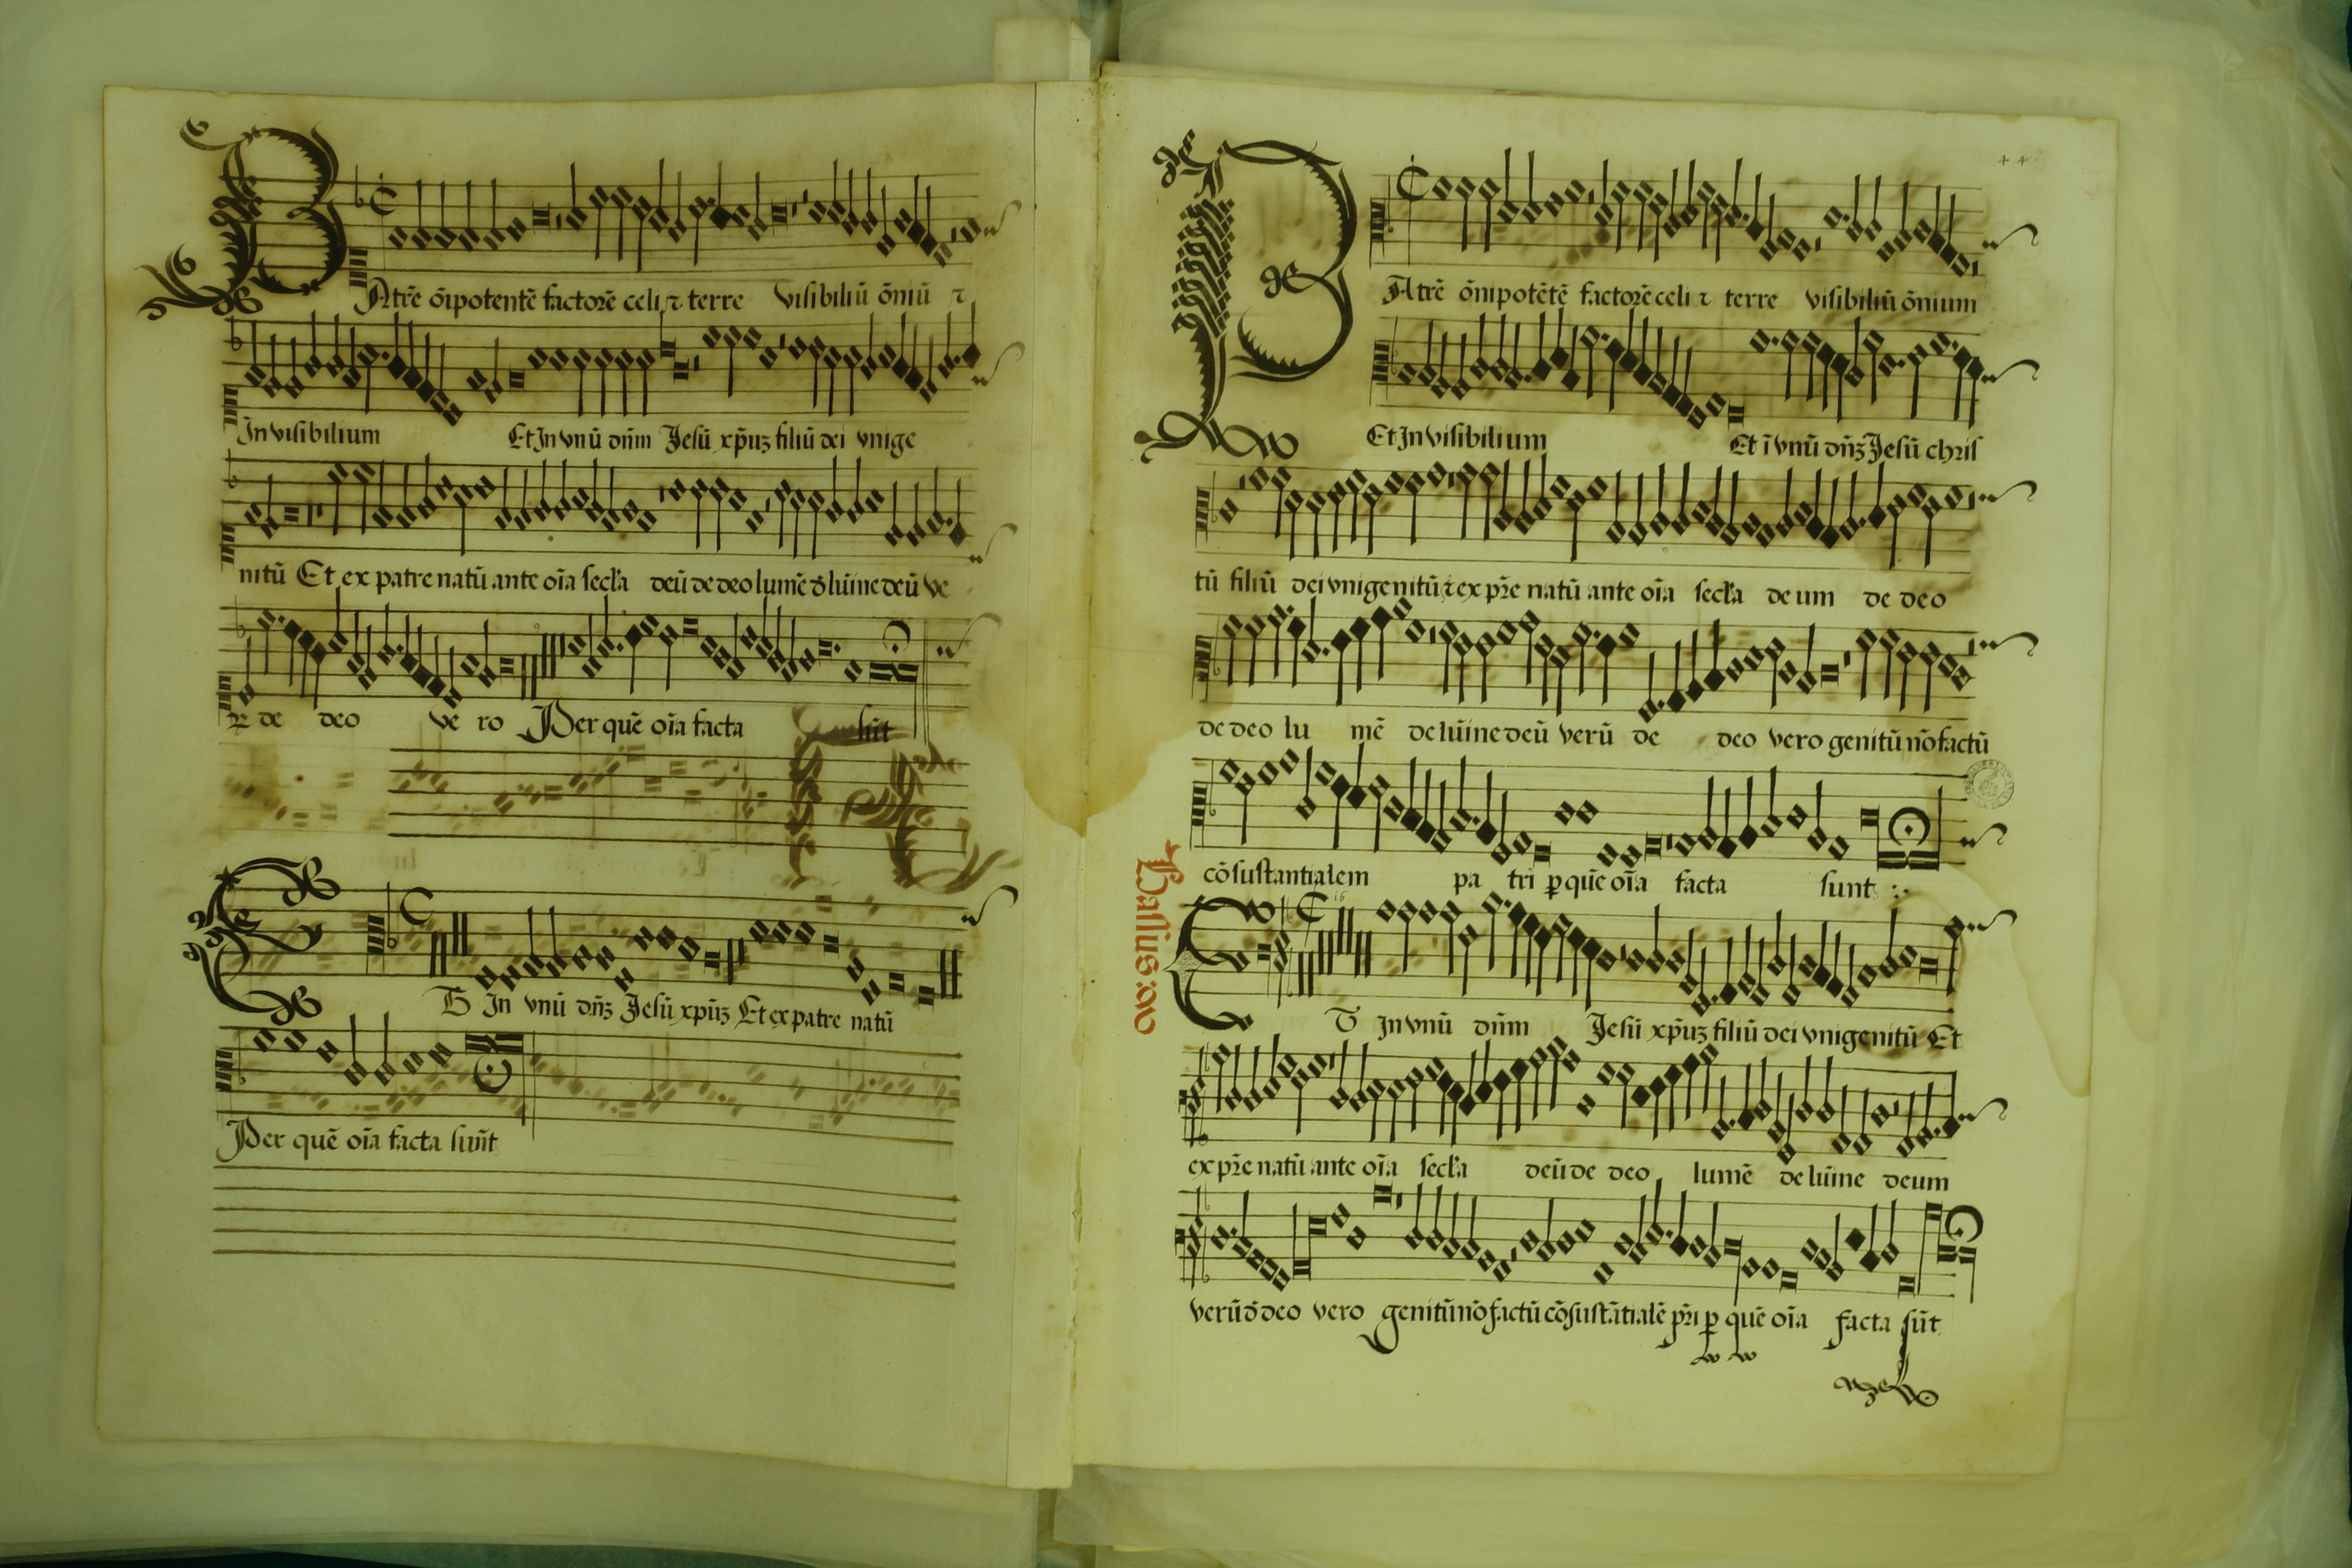 PAtrē ōīpotentē factorē celi ⁊ terre visibiliū ōniū ⁊
Invisibilium Et In vnū dn̄m Jesū xp̄uꝫ filiū dei vnige
nitū Et ex patre natū ante oīa secl̄a deū de deo lumē d̄ lūine deū ve
de deo ve ro Per quē oīa facta sūt
ET In vnū dn̄ꝫ Jesū xp̄uꝫ Et ex patre natū
Per quē oīa facta sun̄t
++
PAtrē ōnipotētē factorē celi ⁊ terre visibiliū ōnium
Et Invisibilium Et ī vnū dn̄ꝫ Jesū chris
tū filiū dei vnigenitū ⁊ ex pr̄e natū ante oīa secl̄a de um de deo
de deo lu mē de lūine deū verū de deo vero genitū nō factū
cōsustantialem pa tri ꝑ quē oīa facta sunt
Bassus
ET In vnū dn̄m Jesū xp̄uꝫ filiū dei vnigenitū Et
ex pr̄e natū ante oīa secl̄a deū de deo lumē de lūine deum
verū d̄ deo vero genitū nō factū cōsustātialē pr̄i ꝑ quē oīa facta sūt